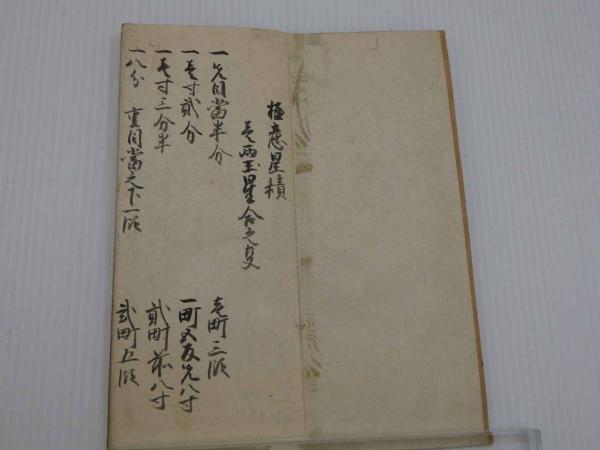 極意星積
壱両玉星合之事
一先目當半分 壱町三順
一壱寸貳分 一町五反先八寸
一壱寸三分半 貳町前八寸
一八分 重目當之下一順 貳町五順